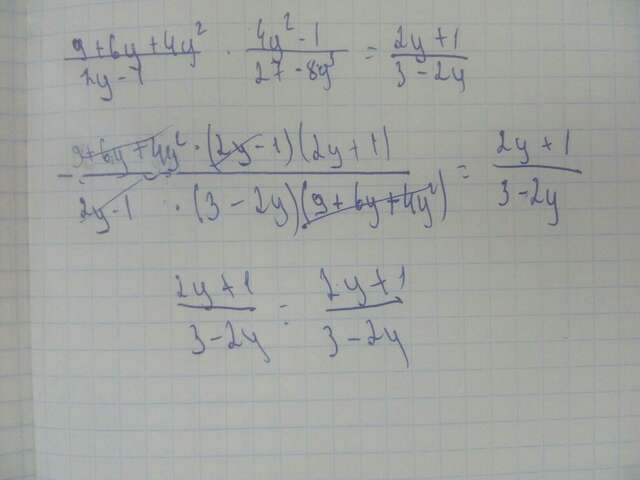 (9+6y+4y²)/(2y-1) · (4y²-1)/(27-8y³) = (2y+1)/(3-2y)
- (9+6y+4y² · (2y-1)(2y+1))/(2y-1 · (3-2y)(9+6y+4y²)) = (2y+1)/(3-2y)
(2y+1)/(3-2y) = (2y+1)/(3-2y)